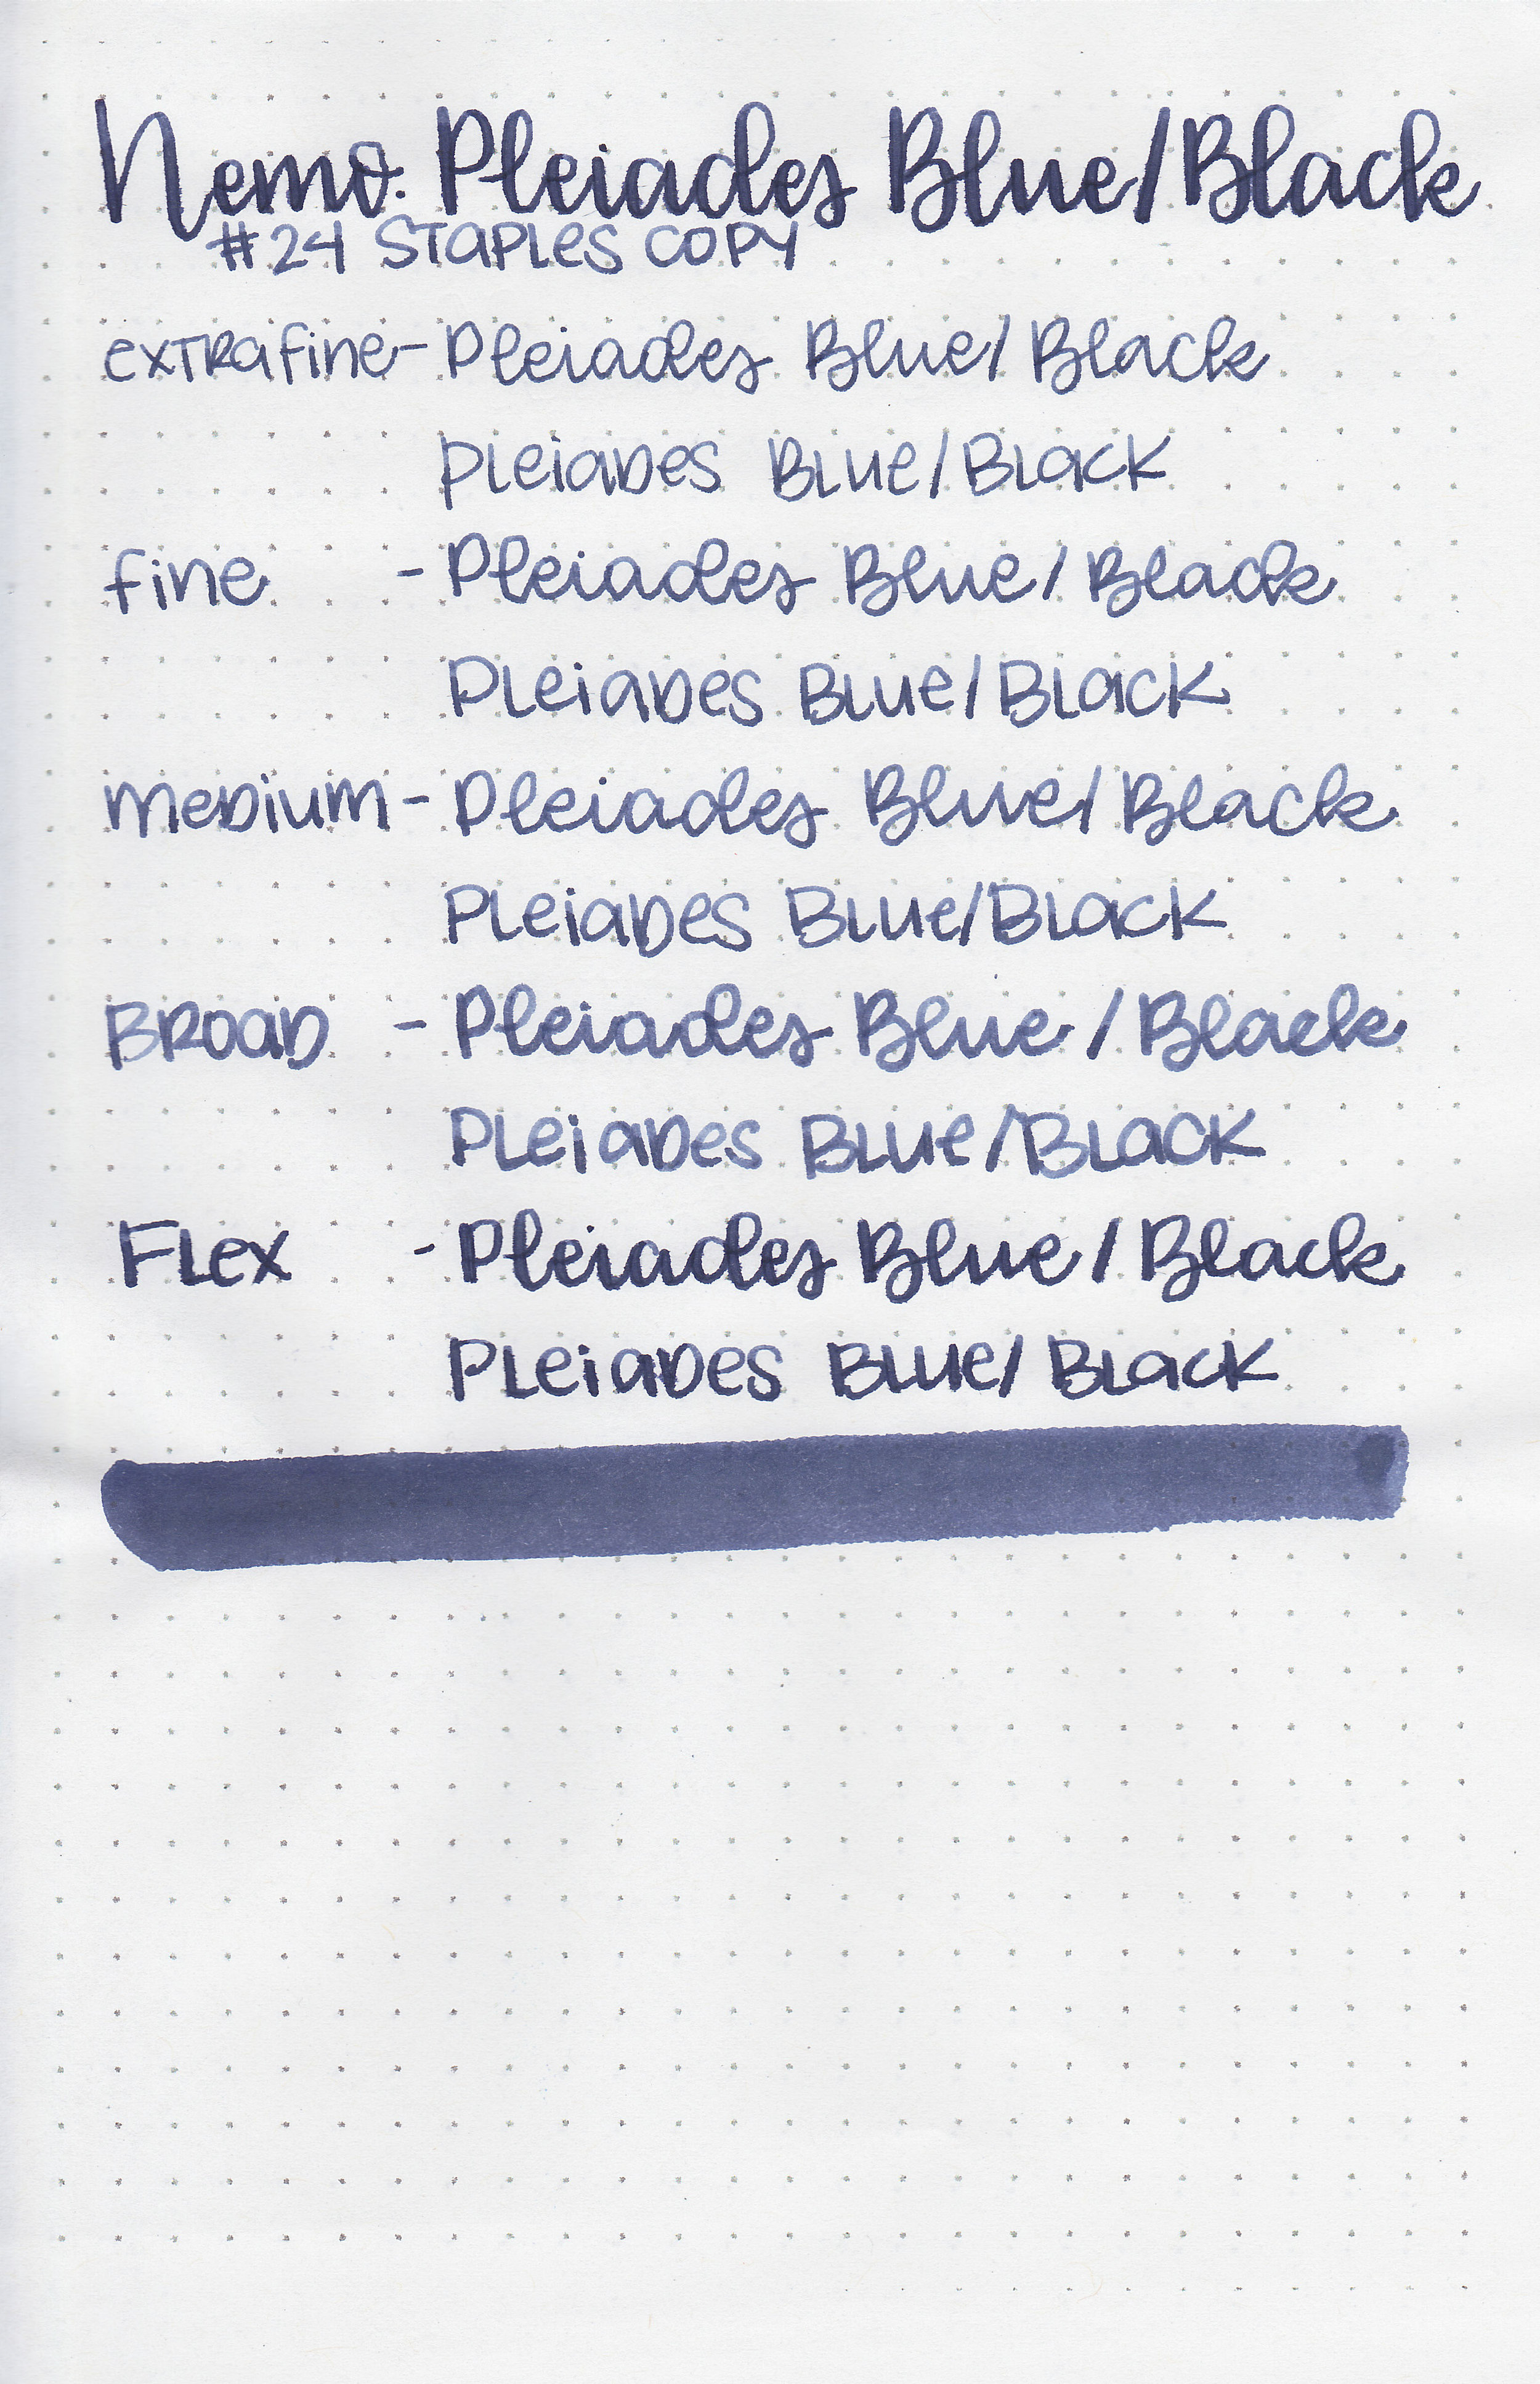 Nemo Pleiades Blue/Black
#24 Staples copy
extra fine - Pleiades Blue/Black
Pleiades Blue/Black
fine - Pleiades Blue/Black
Pleiades Blue/Black
Medium - Pleiades Blue/Black
Pleiades Blue/Black
Broad - Pleiades Blue/Black
Pleiades Blue/Black
Flex - Pleiades Blue/Black
Pleiades Blue/Black